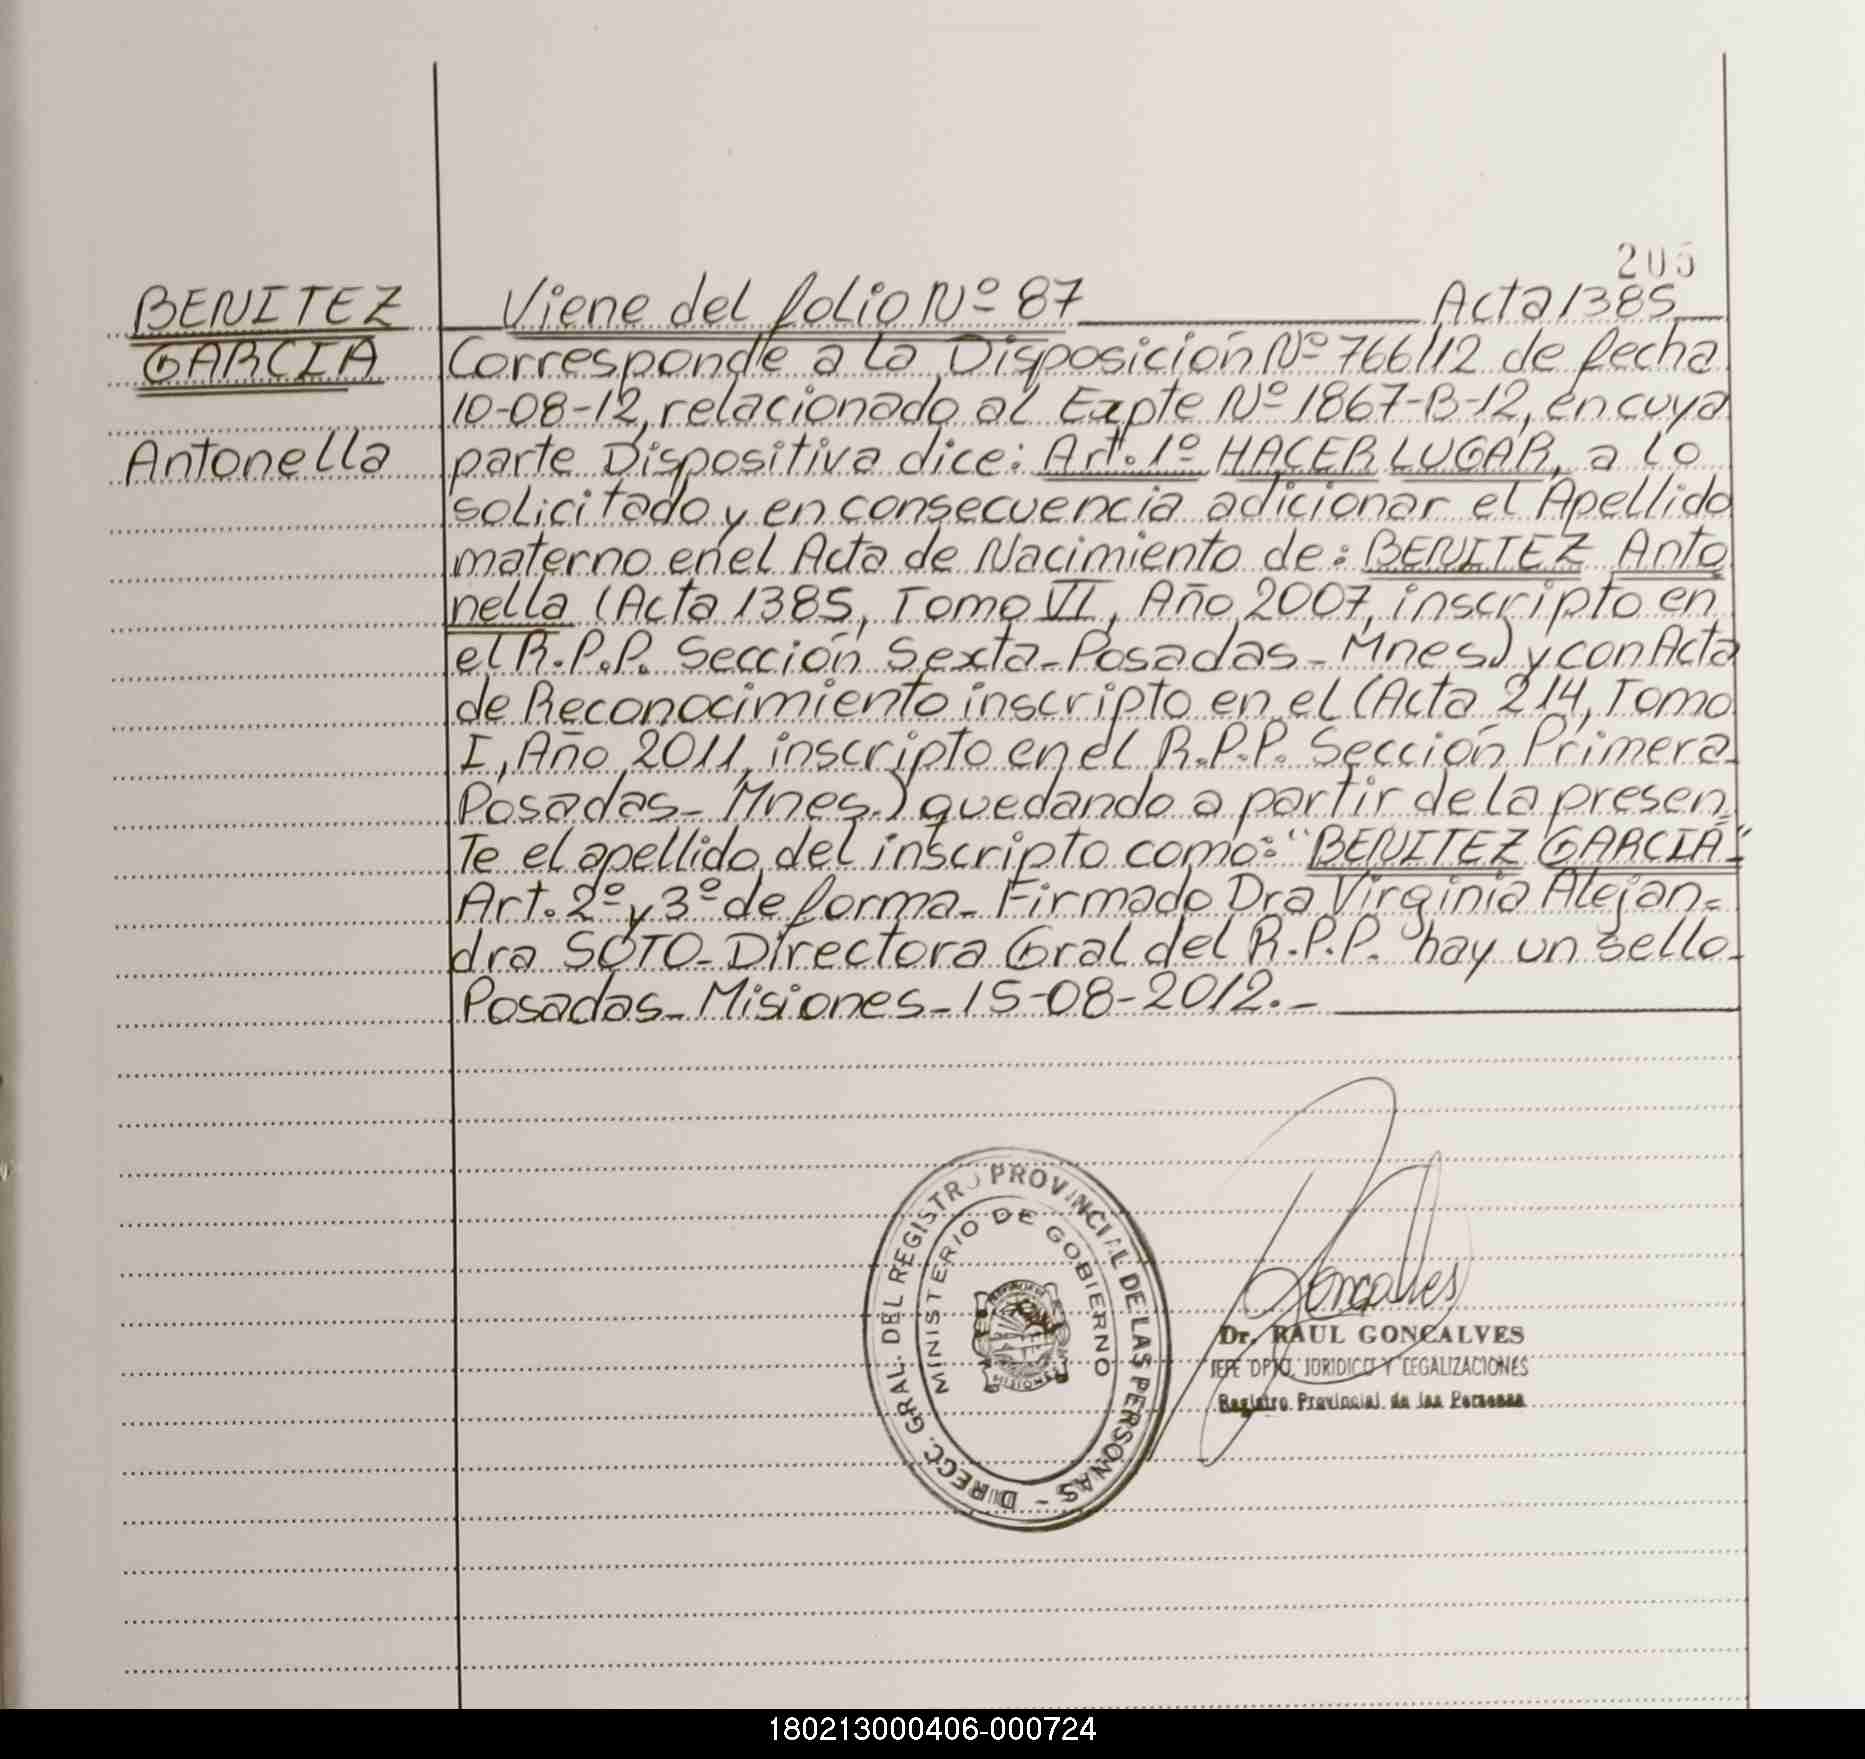 205
BENITEZ
GARCIA
Antonella
Viene del folio Nº 87 Acta 1385
Corresponde a la Disposición Nº 766/12 de fecha
10-08-12, relacionado al Expte Nº 1867-B-12, en cuya
parte Dispositiva dice: Art. 1º HACER LUGAR, a lo
solicitado y en consecuencia adicionar el Apellido
materno en el Acta de Nacimiento de: BENITEZ Anto
nella (Acta 1385, Tomo VI, Año 2007, inscripto en
el R.P.P. Sección Sexta-Posadas-Mnes) y con Acta
de Reconocimiento inscripto en el (Acta 214, Tomo
I, Año 2011, inscripto en el R.P.P. Sección Primera-
Posadas-Mnes.) quedando a partir de la presen=
te el apellido del inscripto como: "BENITEZ GARCIA"-
Art. 2º y 3º de forma- Firmado Dra Virginia Alejan=
dra SOTO-Directora Gral del R.P.P. hay un sello-
Posadas-Misiones-15-08-2012.-
DIRECC. GRAL. DEL REGISTRO PROVINCIAL DE LAS PERSONAS -
MINISTERIO DE GOBIERNO
MISIONES
Goncalves
Dr. RAUL GONCALVES
JEFE DPTO. JURIDICO Y LEGALIZACIONES
Registro Provincial de las Personas
180213000406-000724